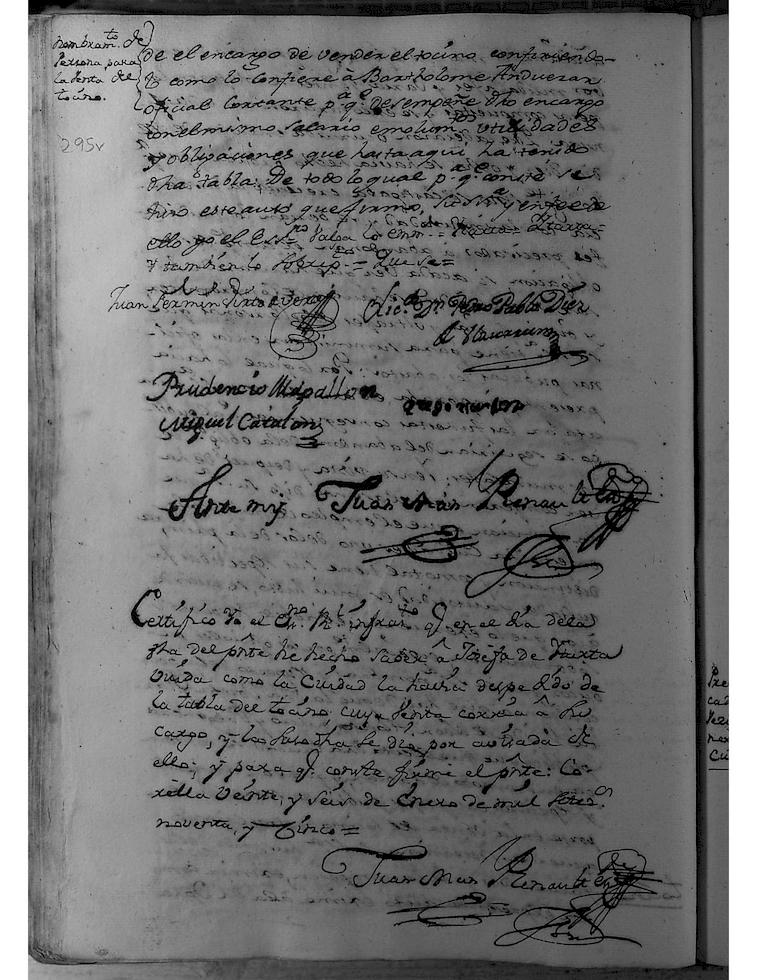 nombram.to de
Persona para
la Venta del
tocino.
295v
de el encargo de vender el tocino confiriendo-
lo como lo confiere à Bartholome Anduezar
oficial Cortante p.a q.e desempeñe dho encargo
con el mismo salario emolum.tos utilidades
y obligaciones que hasta aqui ha tenido
dha tabla: De todo lo qual p.a q.e conste se
hizo este auto que firmó su S.ria y en fee de
ello yo el Ess.no Valga lo em.do
y tambien lo sobrep.to = Que se =
Juan Fermin Virto de Vera
Lic.do Dn. Pedro Pablo Diez
de Ulzurrun
Prudencio Magallon
Miguel Catalan
Ante my Juan Man Renault
Certifico Yo el Es.no R.l infraes.to q.e en el dia dela
fha del pñte he hecho saber â Josefa de Yturta
Viuda como la Ciudad la havia despedido de
la tabla del tocino, cuya Venta corria â su
cargo, y la susodha se dió por avisada de
ello; y para q.e conste firmé el pñte: Co-
rella Veinte, y seis de Enero de mil setec.s
noventa, y Cinco =
Juan Man Renault Es.no